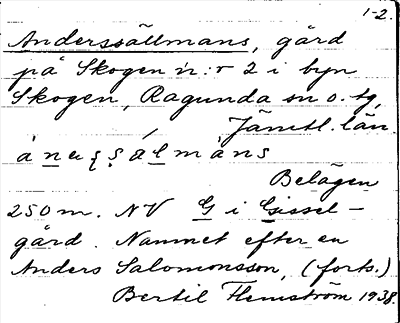 1-2.
Anderssällmans, gård
på Skogen n:r 2 i byn
Skogen, Ragunda sn o. tg,
Jämtl. län
Belägen
250 m. NV G i Gissel-
gård. Namnet efter en
Anders Salomonsson, (forts.)
Bertil Flemström 1938.